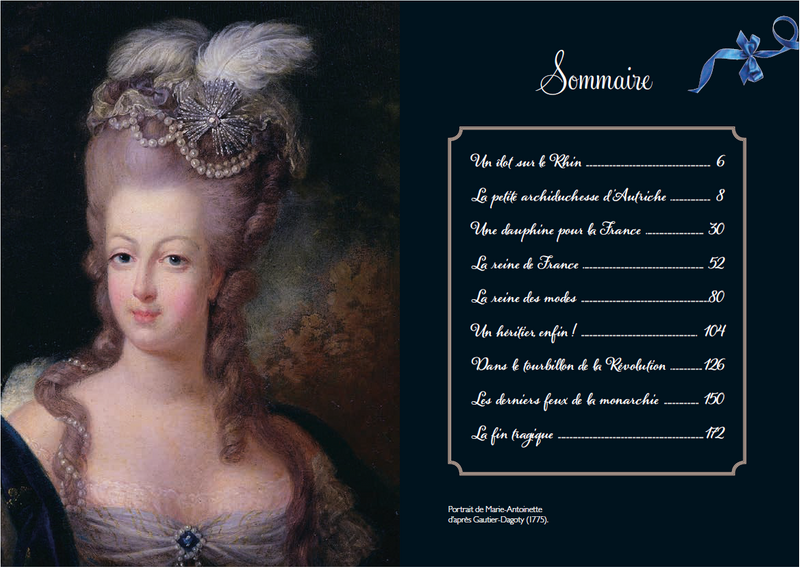 Sommaire
Un îlot sur le Rhin 6
La petite archiduchesse d'Autriche 8
Une dauphine pour la France 30
La reine de France 52
La reine des modes 80
Un héritier, enfin ! 104
Dans le tourbillon de la Révolution 126
Les derniers feux de la monarchie 150
La fin tragique 172
Portrait de Marie-Antoinette
d'après Gautier-Dagoty (1775).